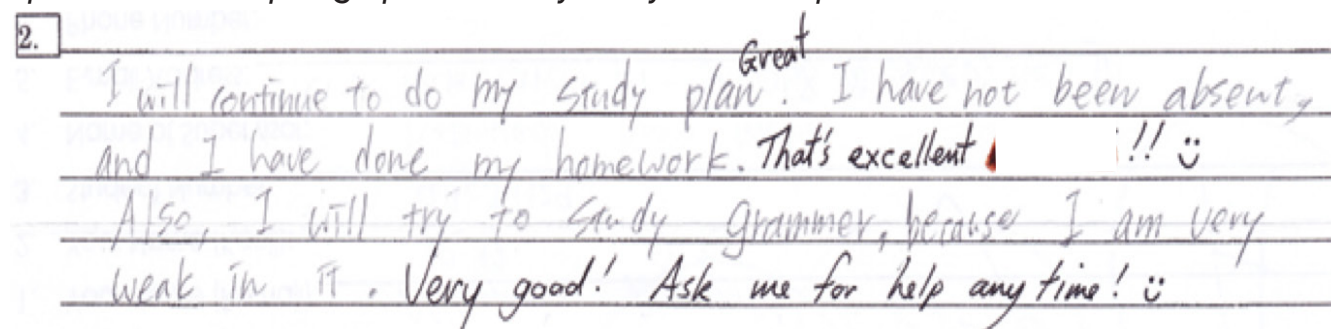 2.
Great
I will continue to do my study plan. I have not been absent,
and I have done my homework. That's excellent !! ü
Also, I will try to study grammer, because I am very
weak in it. Very good! Ask me for help any time! ü